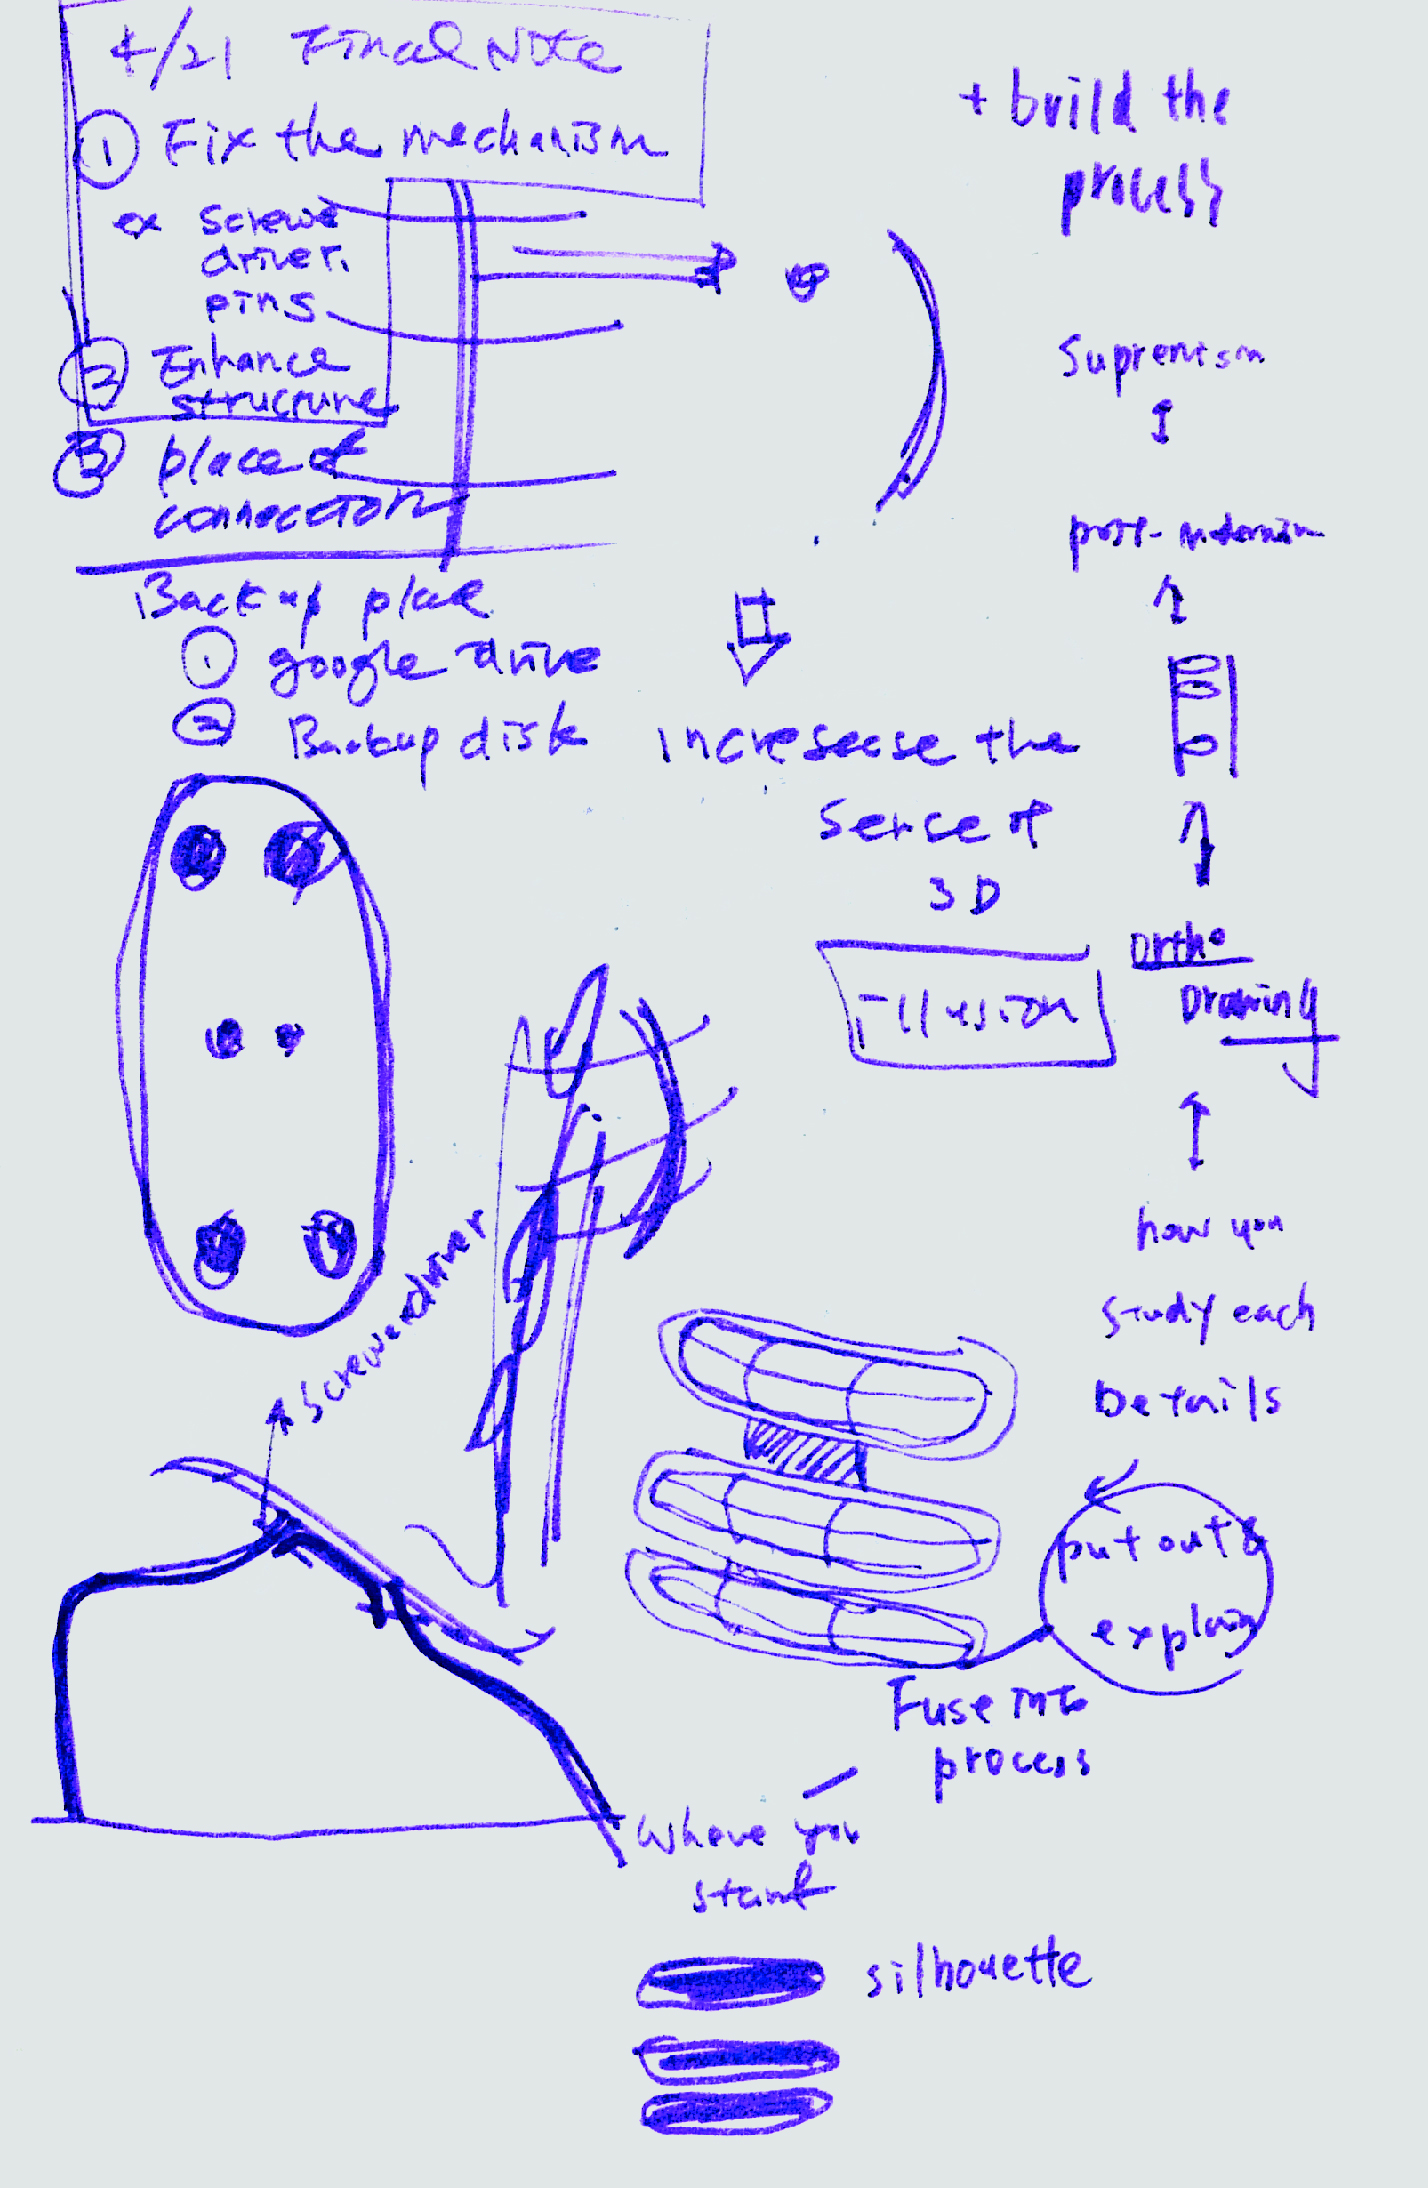 4/21 Final Note
① Fix the mechanism
ex screwe
driver.
pins.
② Enhance
structure
③ place of
connection
Backup plae
① google drive
② Backup disk
incresease the
sense of
3D
illusion
+ build the
process
Supremism
post-modernism
ortho
Drawing
how you
study each
Details
put out &
explain
Fuse into
process
where you
start
silhouette
screwerdriver